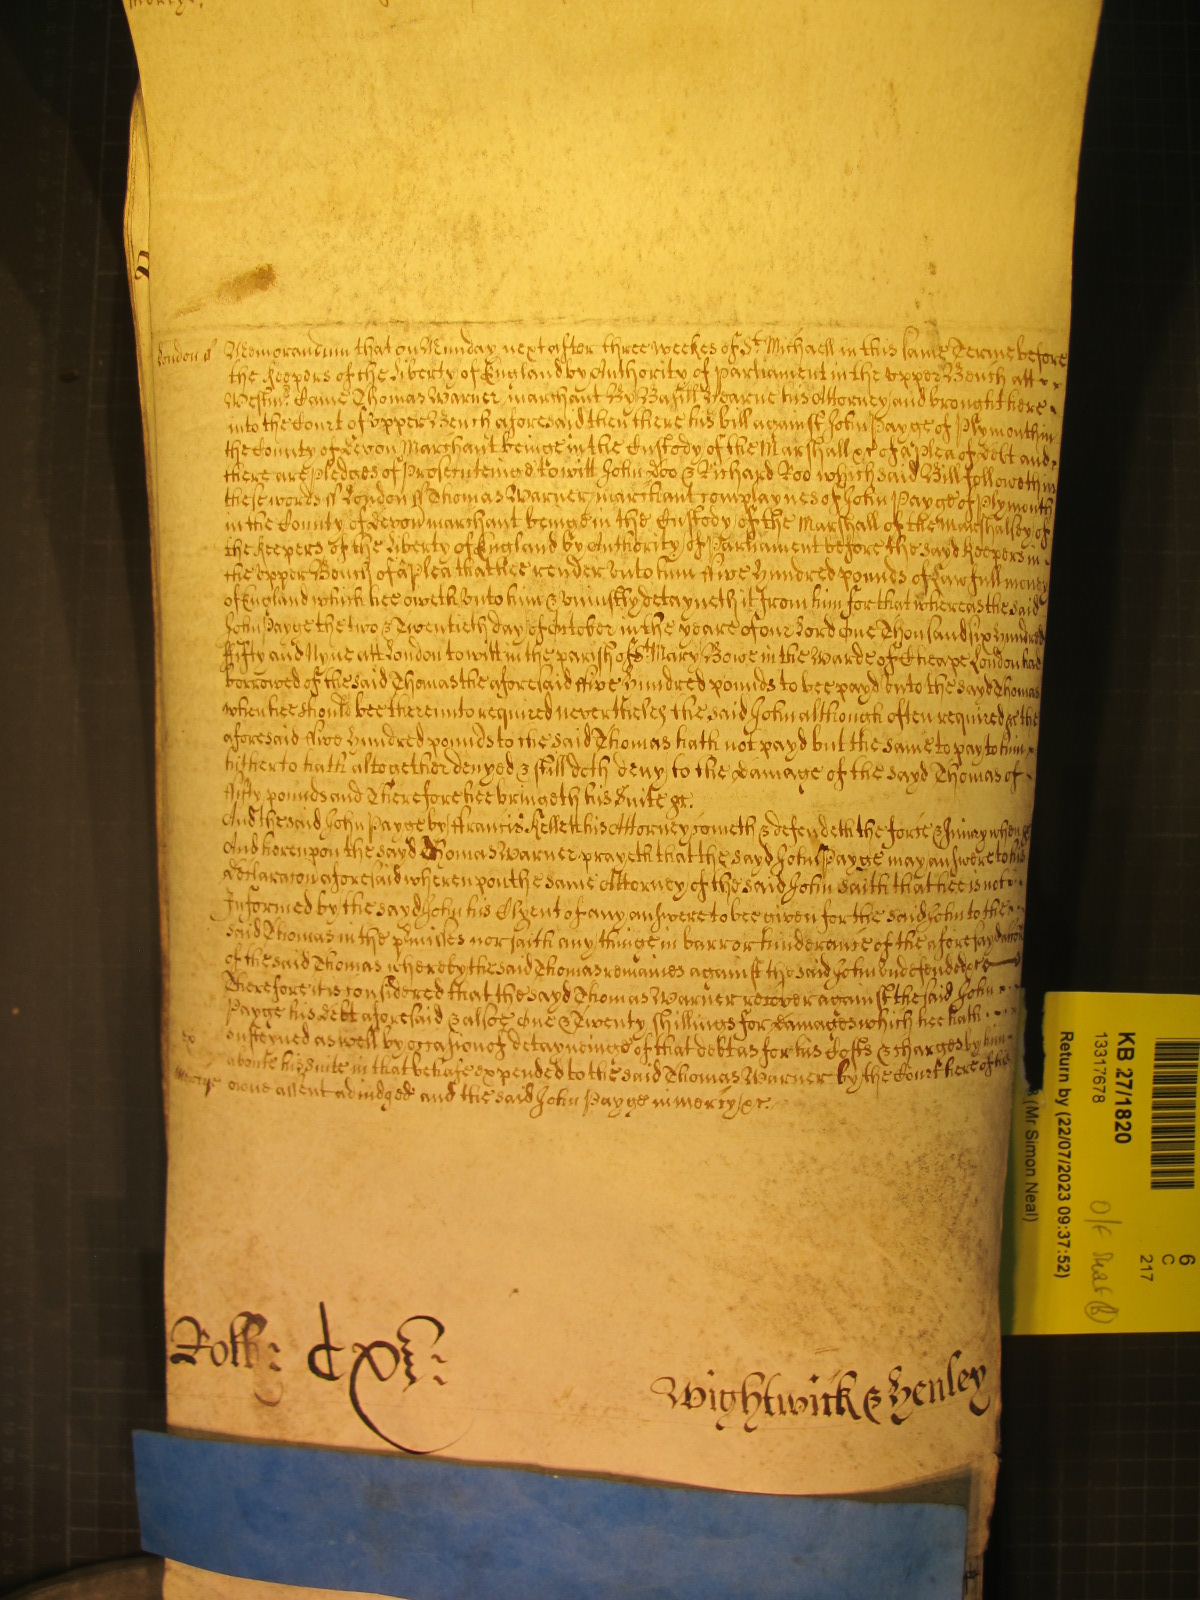 London ss Memorandum that on Munday next after three weekes of St Michaell in this same Terme before
the Keepers of the Liberty of England by Authority of Parliament in the upper Bench att
Westmr. Came Thomas Warner marchant By Basill Hearne his Attorney and brought here
into the Court of Upper Bench aforesaid then there his bill against John Payge of Plymouth in
the County of Devon Marchant beinge in the Custody of the Marshall &c of a Plea of Debt and
there are Pledges of Prosecuteinge to witt John Doo & Richard Roo which said Bill followeth in
these words ss London ss Thomas Warner marchant complaynes of John Payge of Plymouth
in the County of Devon marchant beinge in the Custody of the Marshall of the Marshalsey of
the Keepers of the Liberty of England by Authority of Parliament before the sayd Keepers in
the upper Bench of a Plea that hee render unto him ffive hundred pounds of Lawfull money
of England which hee oweth unto him & uniustly detayneth it from him for that whereas the said
John Payge the two & Twentieth day of October in the yeare of our Lord One Thousand six hundred
ffifty and Nyne att London to witt in the parish of St Mary Bowe in the Warde of Cheape London had
borrowed of the said Thomas the aforesaid ffive hundred pounds to bee payd unto the sayd Thomas
when hee should bee thereunto required neverthelez the said John although often required &c the
aforesaid ffive hundred pounds to the said Thomas hath not payd but the same to pay to him
hitherto hath altogether denyed & still doth deny to the Damage of the sayd Thomas of
ffifty pounds and Therefore hee bringeth his Suite &c.
And the said John Payge by ffrancis Kellett his Attorney cometh & defendeth the force & Iniury when &c
And hereupon the sayd Thomas Warner prayeth that the sayd John Payge may answere to his
declaracon aforesaid whereuponthe same Attorney of the said John saith that hee is not
Informed by the sayd John his Clyent of any answere to bee given for the said John to the
said Thomas in the pmisses nor saith any thinge in barr or hinderance of the aforesayd accon
of the said Thomas whereby the said Thomas remaines against the said John undefended &c
Therefore it is considered that the sayd Thomas Warner recover against the said John
Payge his Debt aforesaid & alsoe One & Twenty shillings for Damages which hee hath
susteyned aswell by occasion of detayneinge of that debt as for his Costs & charges by him
aboute his suite in that behafe expended to the said Thomas Warner by the Court here of his
mercye owne assent adiudged and the said John Payge in mercy &c.
Wightwick & Henley
KB 27/1820
13317678
Return by (22/07/2023 09:37:52)
(Mr Simon Neal)
6
C
217